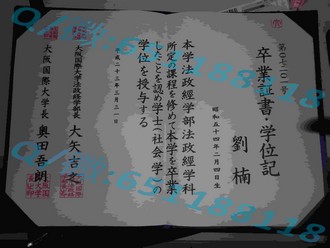 卒業証書・学位記
第一七三〇一号
劉楠
昭和五十四年二月四日生
本学法政経学部法政経学科
所定の課程を修めて本学を卒業
したことを認め学士(社会学)の
学位を授与する
平成二十三年三月三一日
大阪国際大学法政経学部長 大矢吉之
大阪国際大学長 奥田吾朗
Q/微:651188118
Q/微:651188118
Q/微:651188118